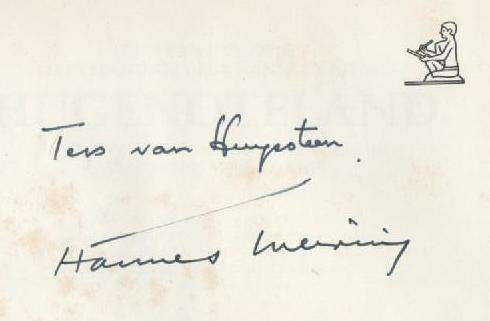 Tess van Huyssteen.
Hannes Meiring